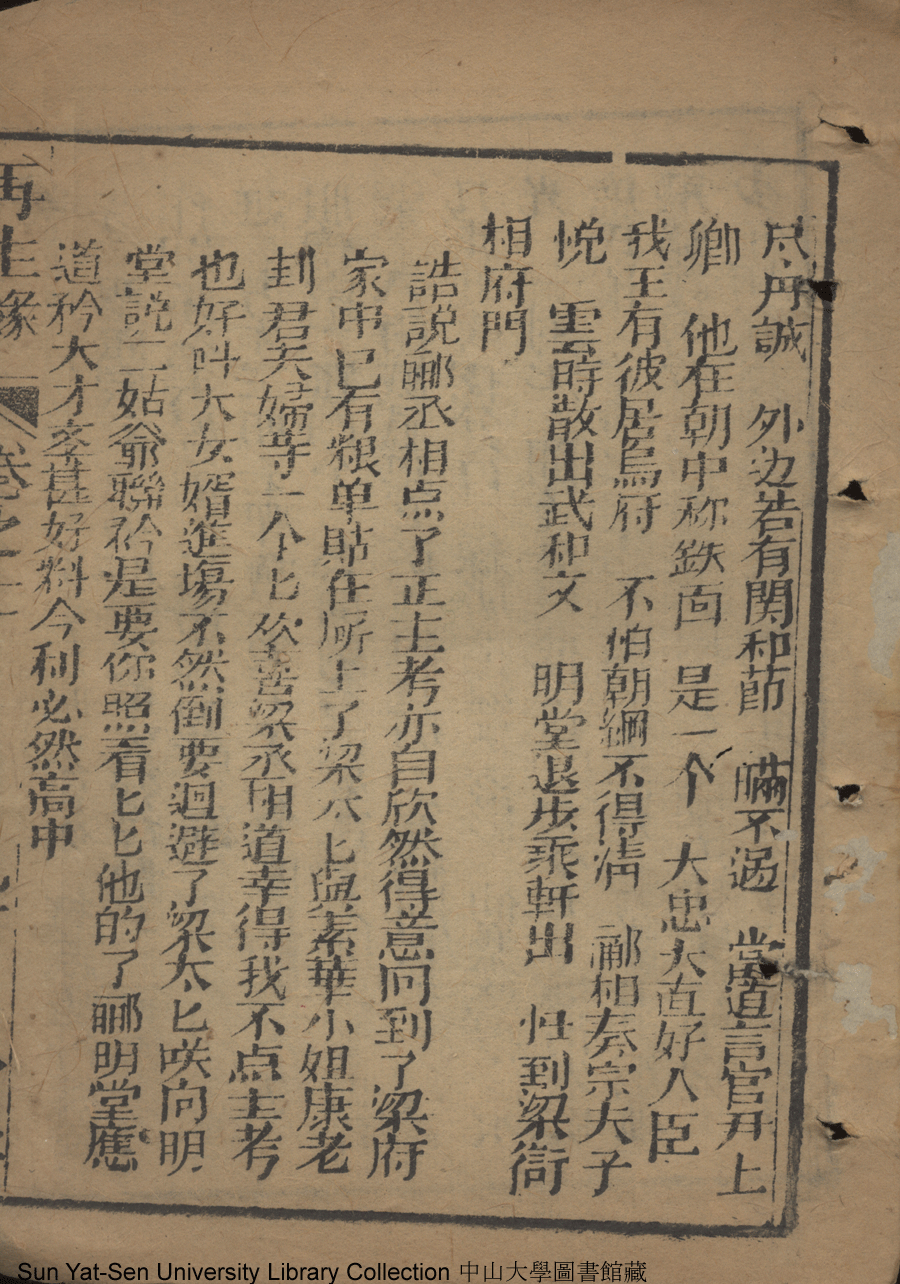 尽丹誠　外边若有関和莭　瞞不过　當道言官井上
卿　他在朝中称鉄面　是一个　大忠大直好人臣
我王有彼居烏府　不怕朝綱不得清　郦相奏宗夫子
悦　雲時散出武和文　明堂退步乘軒出　回到梁衙
相府門
誥説郦丞相点了正主考亦自欣然得意回到了梁府
家中已有粮单貼在所上了梁太匕與素華小姐康老
封君夫婦寺一个匕欢喜梁丞相道幸得我不点主考
也好叫大女婿進塲不然倒要迴避了梁太匕咲向明
堂説二姑爷聯矜是要你照看匕匕他的了郦明堂應
道矜大才李甚好料今科必然高中
再生緣　卷之十
Sun Yat-Sen University Library Collection 中山大學圖書館藏